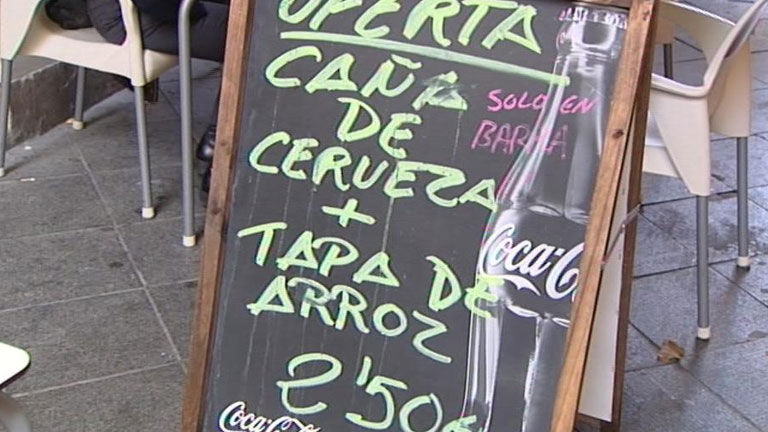 OFERTA
CAÑA
DE
CERVEZA
SOLO EN
BARRA
+
TAPA DE
ARROZ
2'50€
Coca-Cola
Coca-C